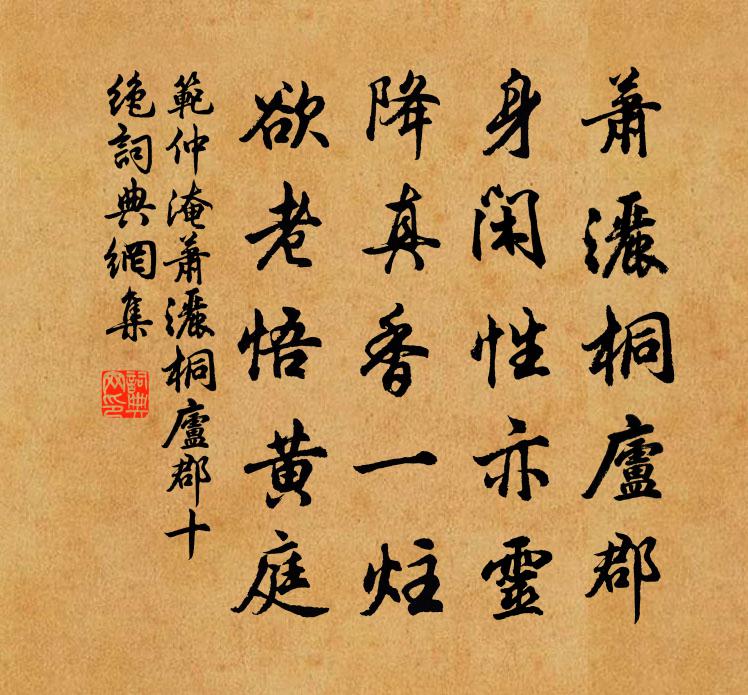 蕭灑桐廬郡
身閑性亦靈
降真香一炷
欲老悟黃庭
範仲淹蕭灑桐廬郡十
絕詞典網集
詞典
網印